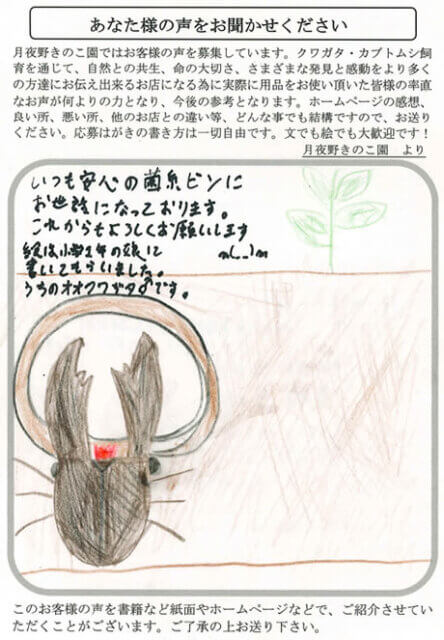 あなた様の声をお聞かせください
月夜野きのこ園ではお客様の声を募集しています。クワガタ・カブトムシ飼
育を通じて、自然との共生、命の大切さ、さまざまな発見と感動をより多く
の方達にお伝え出来るお店になる為に実際に用品をお使い頂いた皆様の率直
なお声が何よりの力となり、今後の参考となります。ホームページの感想、
良い所、悪い所、他のお店との違い等、どんな事でも結構ですので、お送り
ください。応募はがきの書き方は一切自由です。文でも絵でも大歓迎です！
月夜野きのこ園　より
いつも安心の菌糸ビンに
お世話になっております。
これからもよろしくお願いします
m(_ _)m
絵は小学1年の娘に
書いてもらいました。
うちのオオクワガタ♂です。
このお客様の声を書籍など紙面やホームページなどで、ご紹介させてい
ただくことがございます。ご了承の上お送り下さい。